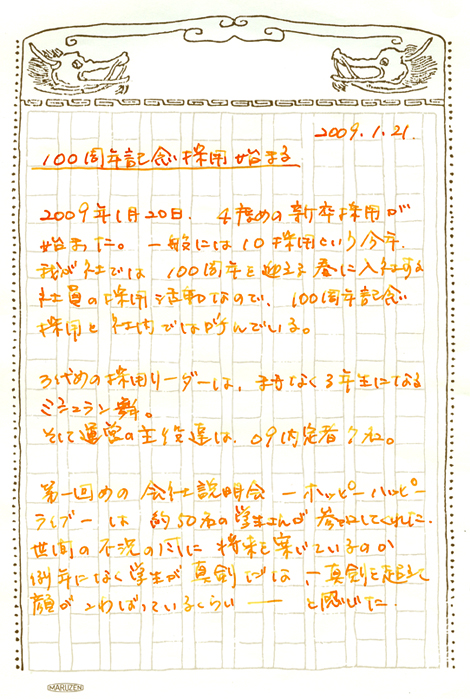 2009.1.21.
100周年記念採用始まる
2009年1月20日. 4度めの新卒採用が
始まった。一般には10採用という今年.
我が社では 100周年を迎える春に入社する
社員の採用活動なので、100周年記念
採用と社内では呼んでいる。
3代めの採用リーダーは、まもなく3年生になる
ミシュラン舞。
そして運営の主役達は、09内定者7名。
第一回めの会社説明会 ーホッピーハッピー
ライブーは 約50名の学生さんが参加してくれた.
世間の不況の風に将来を案じているのか
例年になく学生が真剣では、ー真剣を超えて
顔がこわばっているくらい ー と感じた.
MARUZEN